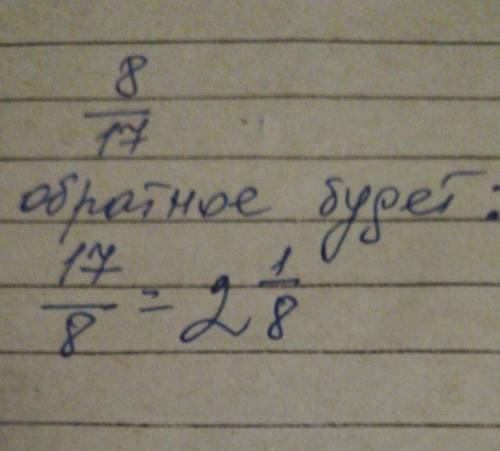 8/17
обратное будет:
17/8 = 2 1/8